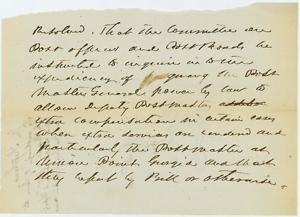 Resolved. That the Committee on
Post offices and Post Roads be
instructed to inquire into the
expediency of giving the Post
Master General power by law to
allow Deputy Postmasters
extra compensation in certain cases
when extra services are rendered and
particularly the Postmaster at
Union Point Georgia and that
they report by Bill or otherwise.